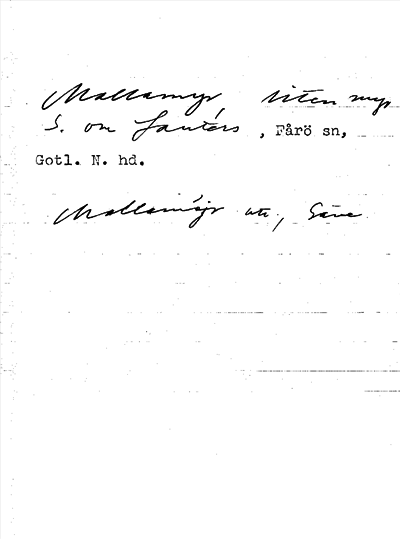 Mallamyr, liten myr
S. om Lauters, Fårö sn,
Gotl. N. hd.
Mallamŷr ut., Säve